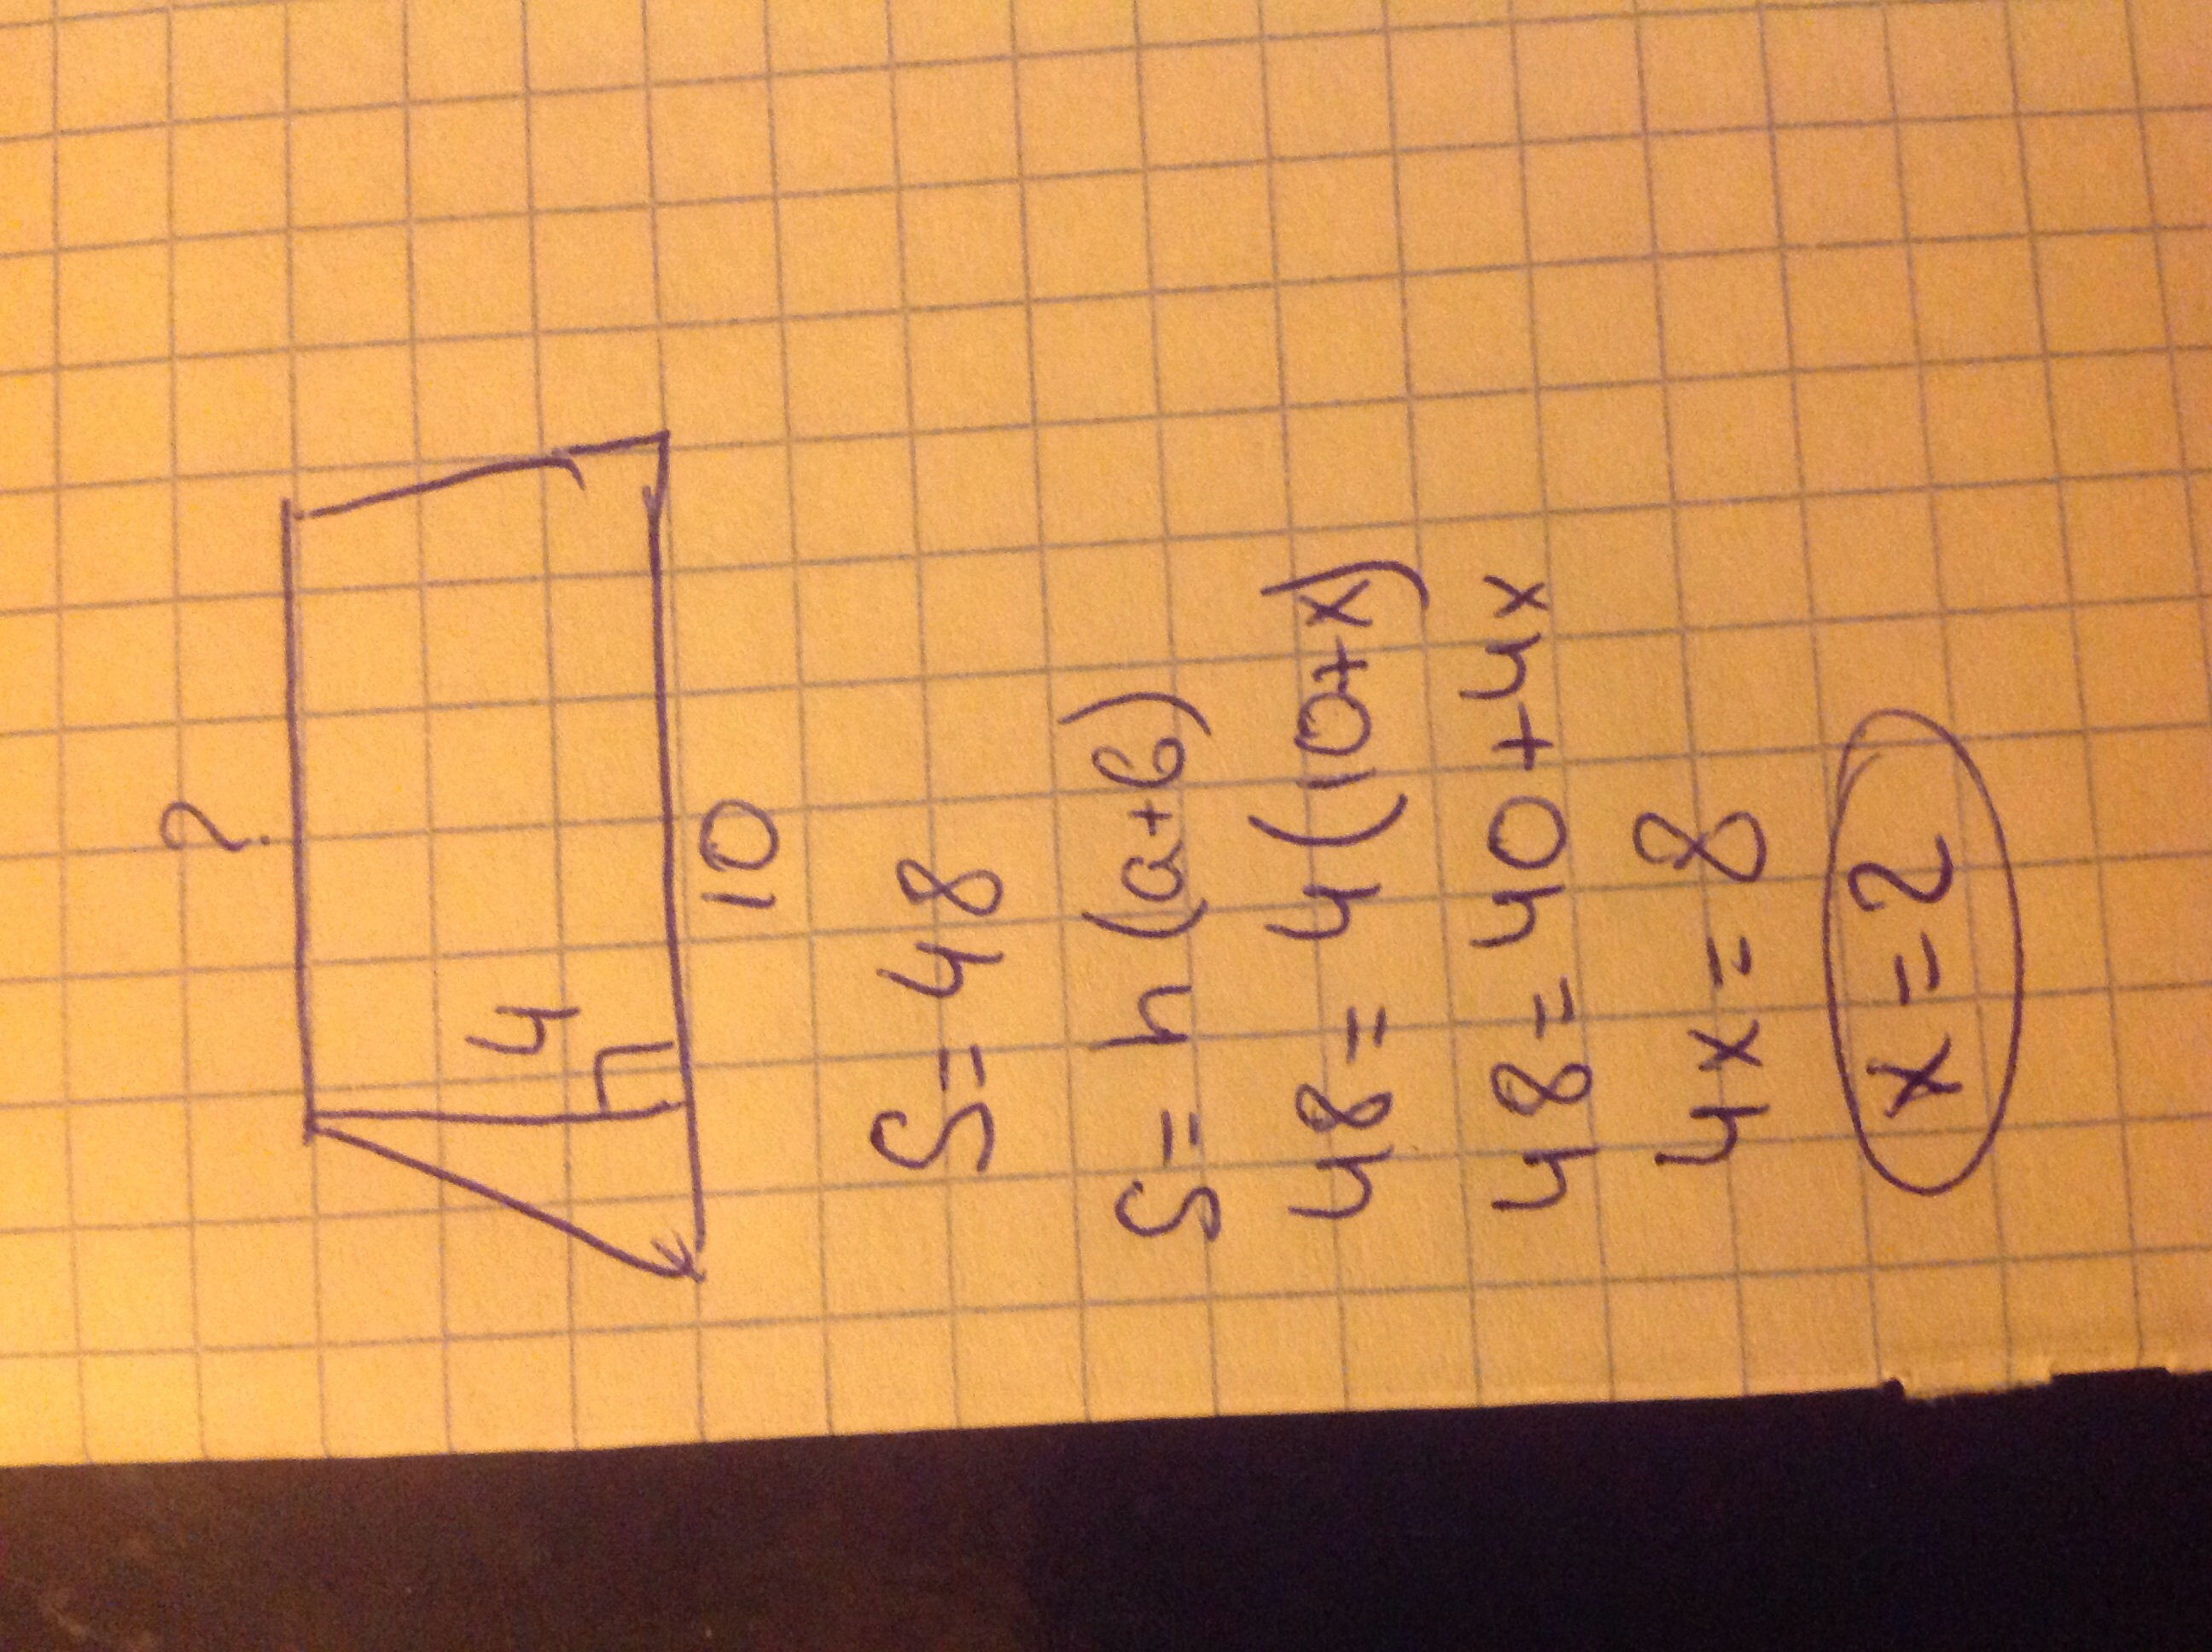 ?
4
10
S = 48
S = h (a+b)
48 = 4 (10+x)
48 = 40 + 4x
4x = 8
x = 2